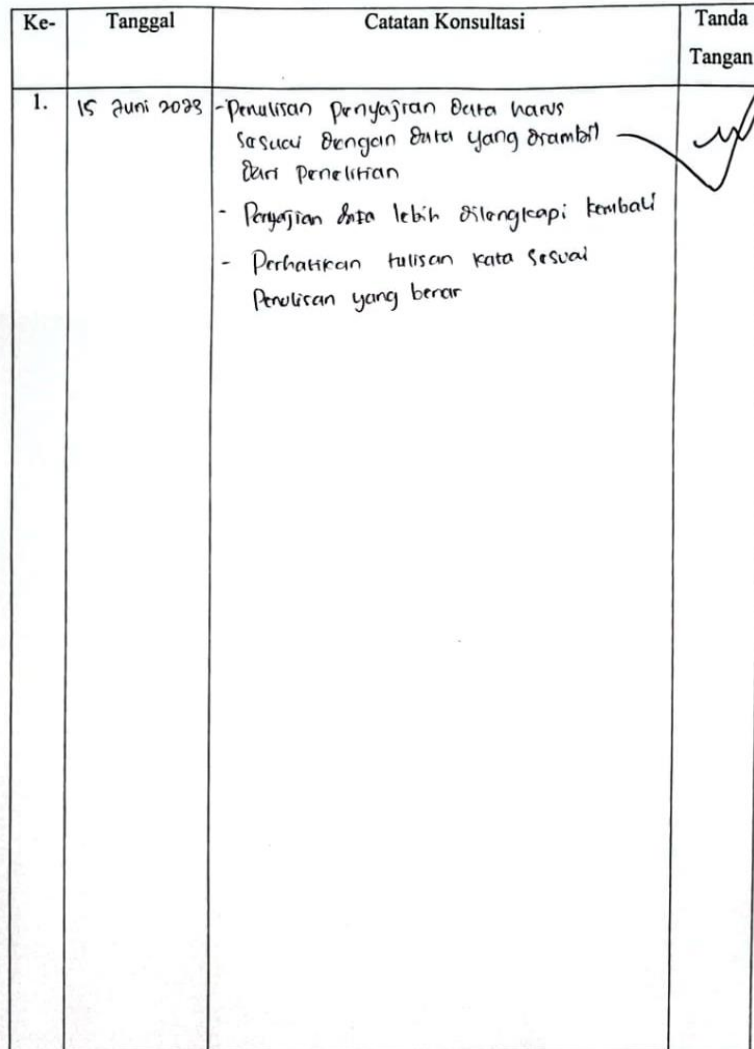 Ke- Tanggal Catatan Konsultasi Tanda
Tangan
1. 15 Juni 2023 - Penulisan Penyajian Data harus
sesuai Dengan Data yang Diambil
Dari Penelitian
- Penyajian Data lebih Dilengkapi kembali
- Perhatikan tulisan kata sesuai
Penulisan yang benar